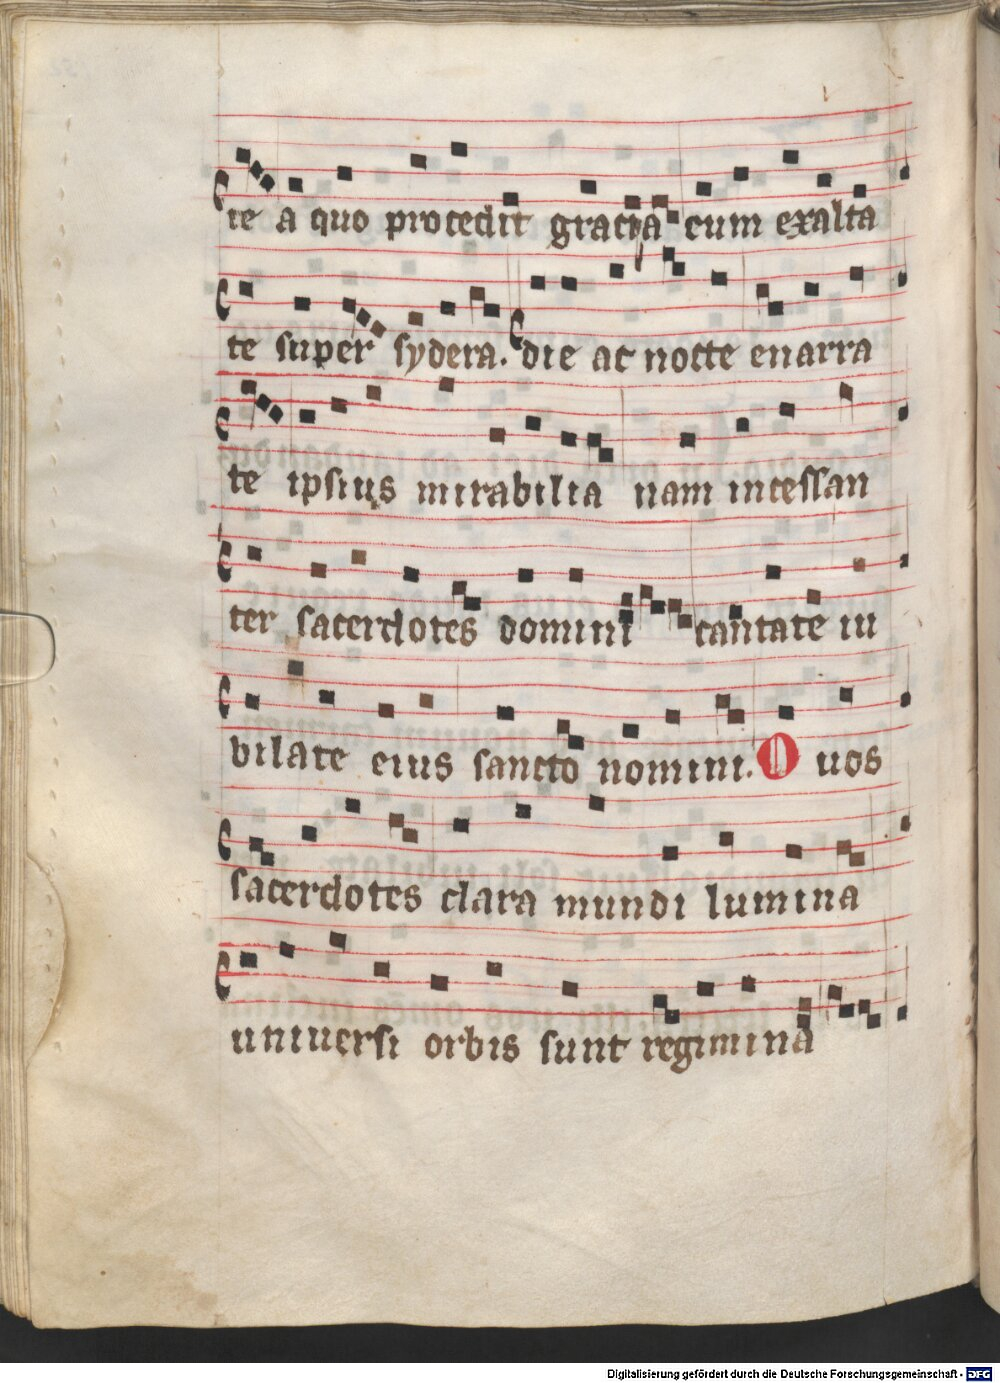 te a quo procedit gracia eum exalta
te super sydera. die ac nocte enarra
te ipsius mirabilia nam incessan
ter sacerdotes domini cantate iu
bilate eius sancto nomini. O uos
sacerdotes clara mundi lumina
uniuersi orbis sunt regimina
Digitalisierung gefördert durch die Deutsche Forschungsgemeinschaft - DFG